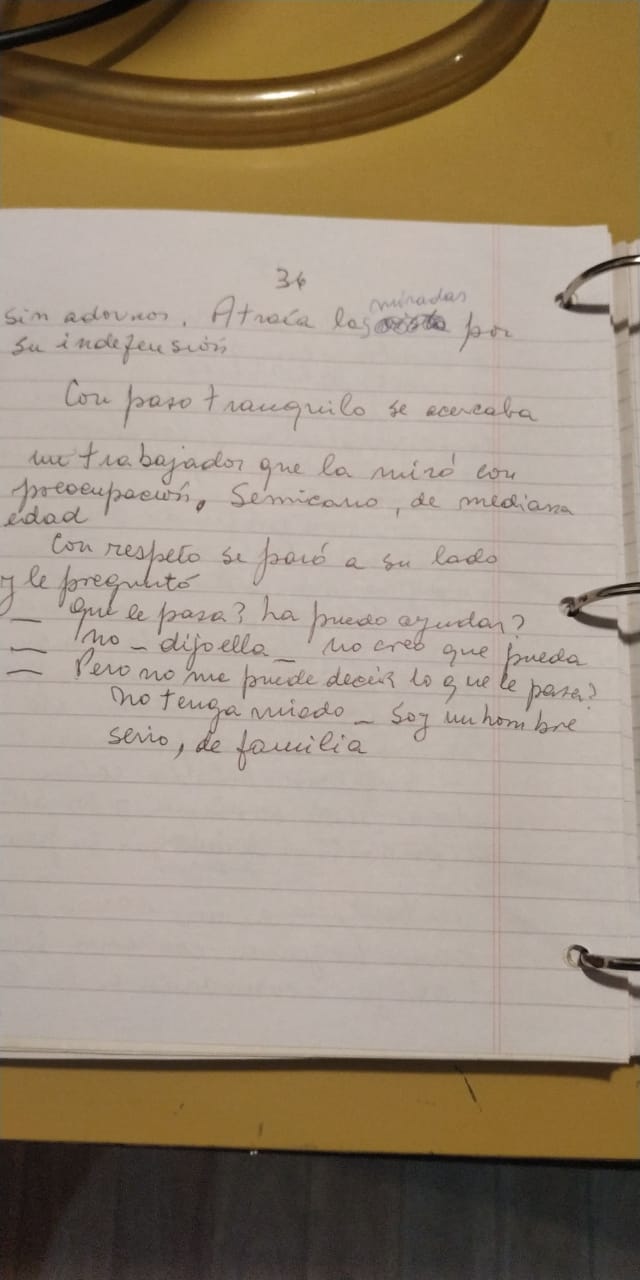 36
sin adornos. Atraía las miradas por
su indefensión
Con paso tranquilo se acercaba
un trabajador que la miró con
preocupación. Semicano, de mediana
edad
Con respeto se paró a su lado
y le preguntó
— Que le pasa? La puedo ayudar?
— No — dijo ella — no creo que pueda
— Pero no me puede decir lo que le pasa?
No tenga miedo — Soy un hombre
serio, de familia